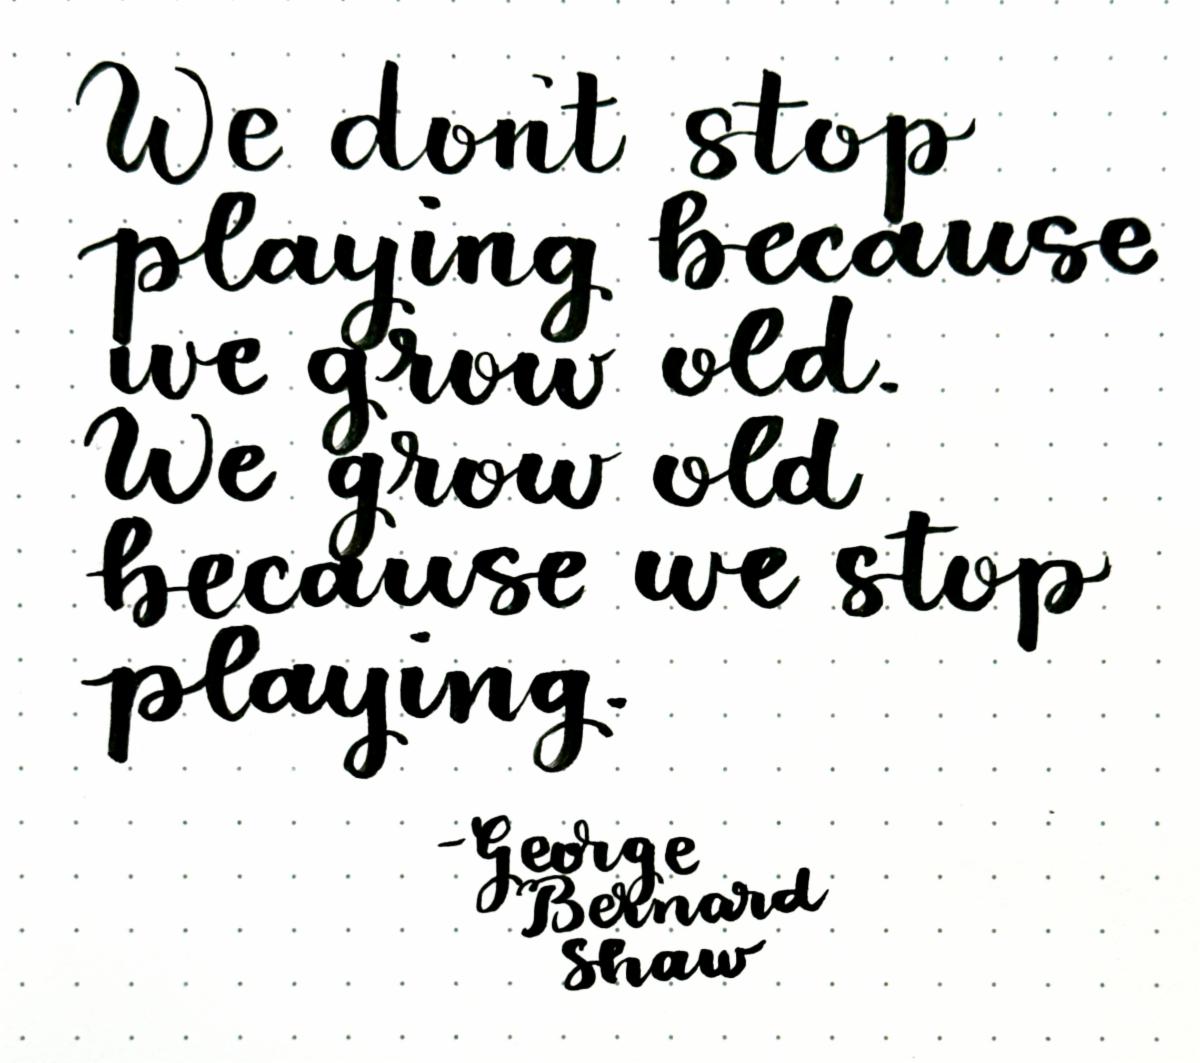 We don't stop
playing because
we grow old.
We grow old
because we stop
playing.
-George
Bernard
Shaw